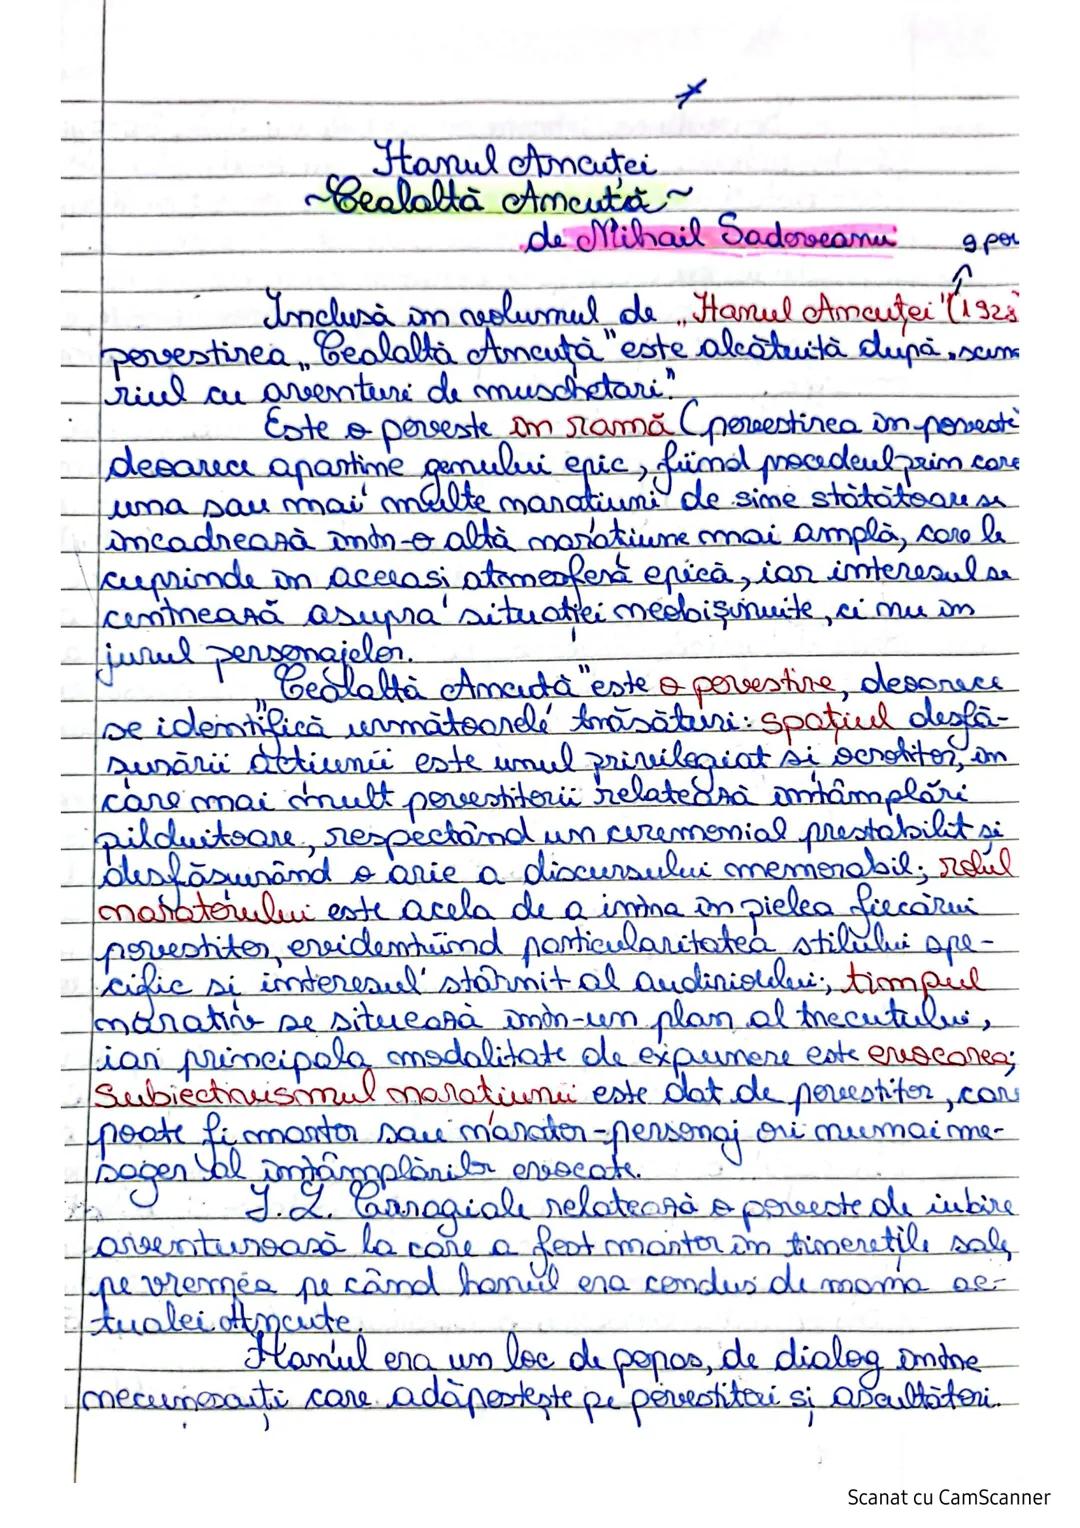 Hanul Ancuței
~Cealaltă Ancuță~
de Mihail Sadoveanu
9 pov
Inclusă în volumul de „Hanul Ancuței" (1928
povestirea „Cealaltă Ancuță" este alcătuită după „scena
riul cu aventuri de muschetari."
Este o poveste în ramă (povestirea în povesti
deoarece apartine genului epic, fiind procedeul prin care
una sau mai multe naratiuni de sine stătătoare se
încadrează într-o altă narațiune mai amplă, care le
cuprinde în aceeasi atmosferă epică, iar interesul se
centrează asupra situației neobișinuite, ci nu în
jurul personajelor.
„Cealaltă Ancuță" este o povestire, deoarece
se identifică următoarele trăsături: spațiul desfă-
șurării acțiunii este unul privilegiat si ocrotitor, în
care mai mult povestitorii relatează întâmplări
pilduitoare, respectând un ceremonial prestabilit și
desfășurând o arie a discursului memorabil; rolul
naratorului este acela de a intra în pielea fiecărui
povestitor, evidentiind particularitatea stilului spe-
cific si interesul stârnit al audiriolului; timpul
narativ se situează într-un plan al trecutului,
iar principala modalitate de expunere este evocarea;
Subiectivismul narațiunii este dat de povestitor, care
poate fi martor sau narator-personaj ori numai me-
sager al întâmplărilor evocate.
I. L. Caragiale relatează o poveste de iubire
aventuroasă la care a fost martor în tineretile sale,
pe vremea pe când hanul era condus de mama ac-
tualei Ancute.
Hanul era un loc de popas, de dialog între
necunoscuți care adăpostește pe povestitori și ascultători.
Scanat cu CamScanner